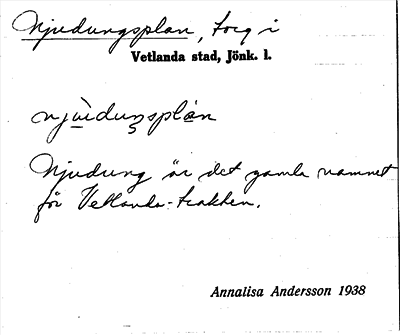 Njudungsplan, torg i
Vetlanda stad, Jönk. l.
njùduŋsplán
Njudung är det gamla namnet
för Vetlanda-trakten.
Annalisa Andersson 1938